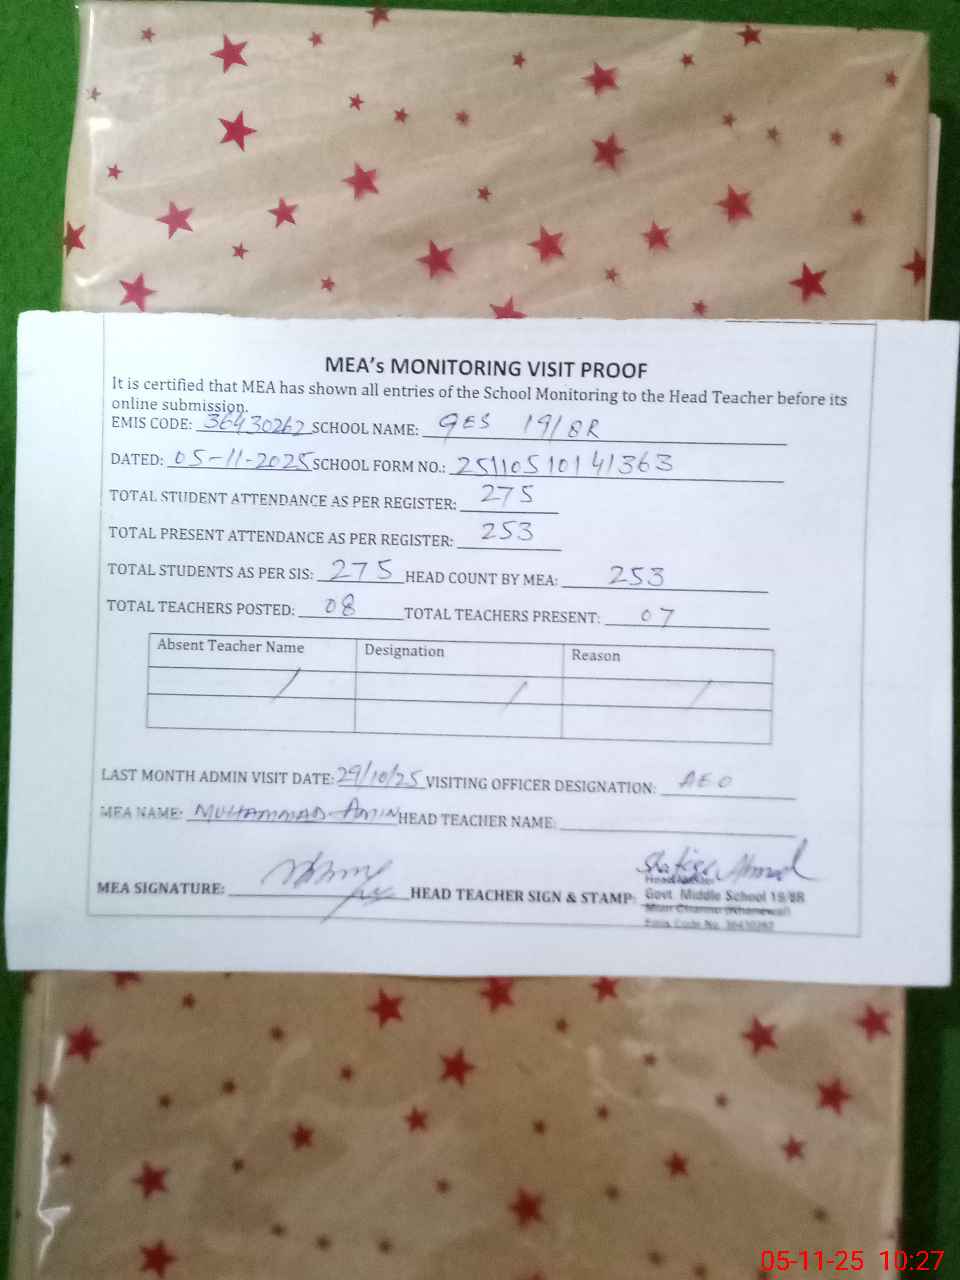 MEA's MONITORING VISIT PROOF
It is certified that MEA has shown all entries of the School Monitoring to the Head Teacher before its
online submission.
EMIS CODE: 36430262 SCHOOL NAME: GES 19/8R
DATED: 05-11-2025 SCHOOL FORM NO.: 2511051014 1363
TOTAL STUDENT ATTENDANCE AS PER REGISTER: 275
TOTAL PRESENT ATTENDANCE AS PER REGISTER: 253
TOTAL STUDENTS AS PER SIS: 275 HEAD COUNT BY MEA: 253
TOTAL TEACHERS POSTED: 08 TOTAL TEACHERS PRESENT: 07
Absent Teacher Name Designation Reason
/ / /
LAST MONTH ADMIN VISIT DATE: 29/10/25 VISITING OFFICER DESIGNATION: AEO
MEA NAME: MUHAMMAD AMIN HEAD TEACHER NAME:
MEA SIGNATURE: HEAD TEACHER SIGN & STAMP: Ahmad
Govt. Middle School 19/8R
Mian Channu (Khanewal)
Emis Code No. 36430262
05-11-25 10:27